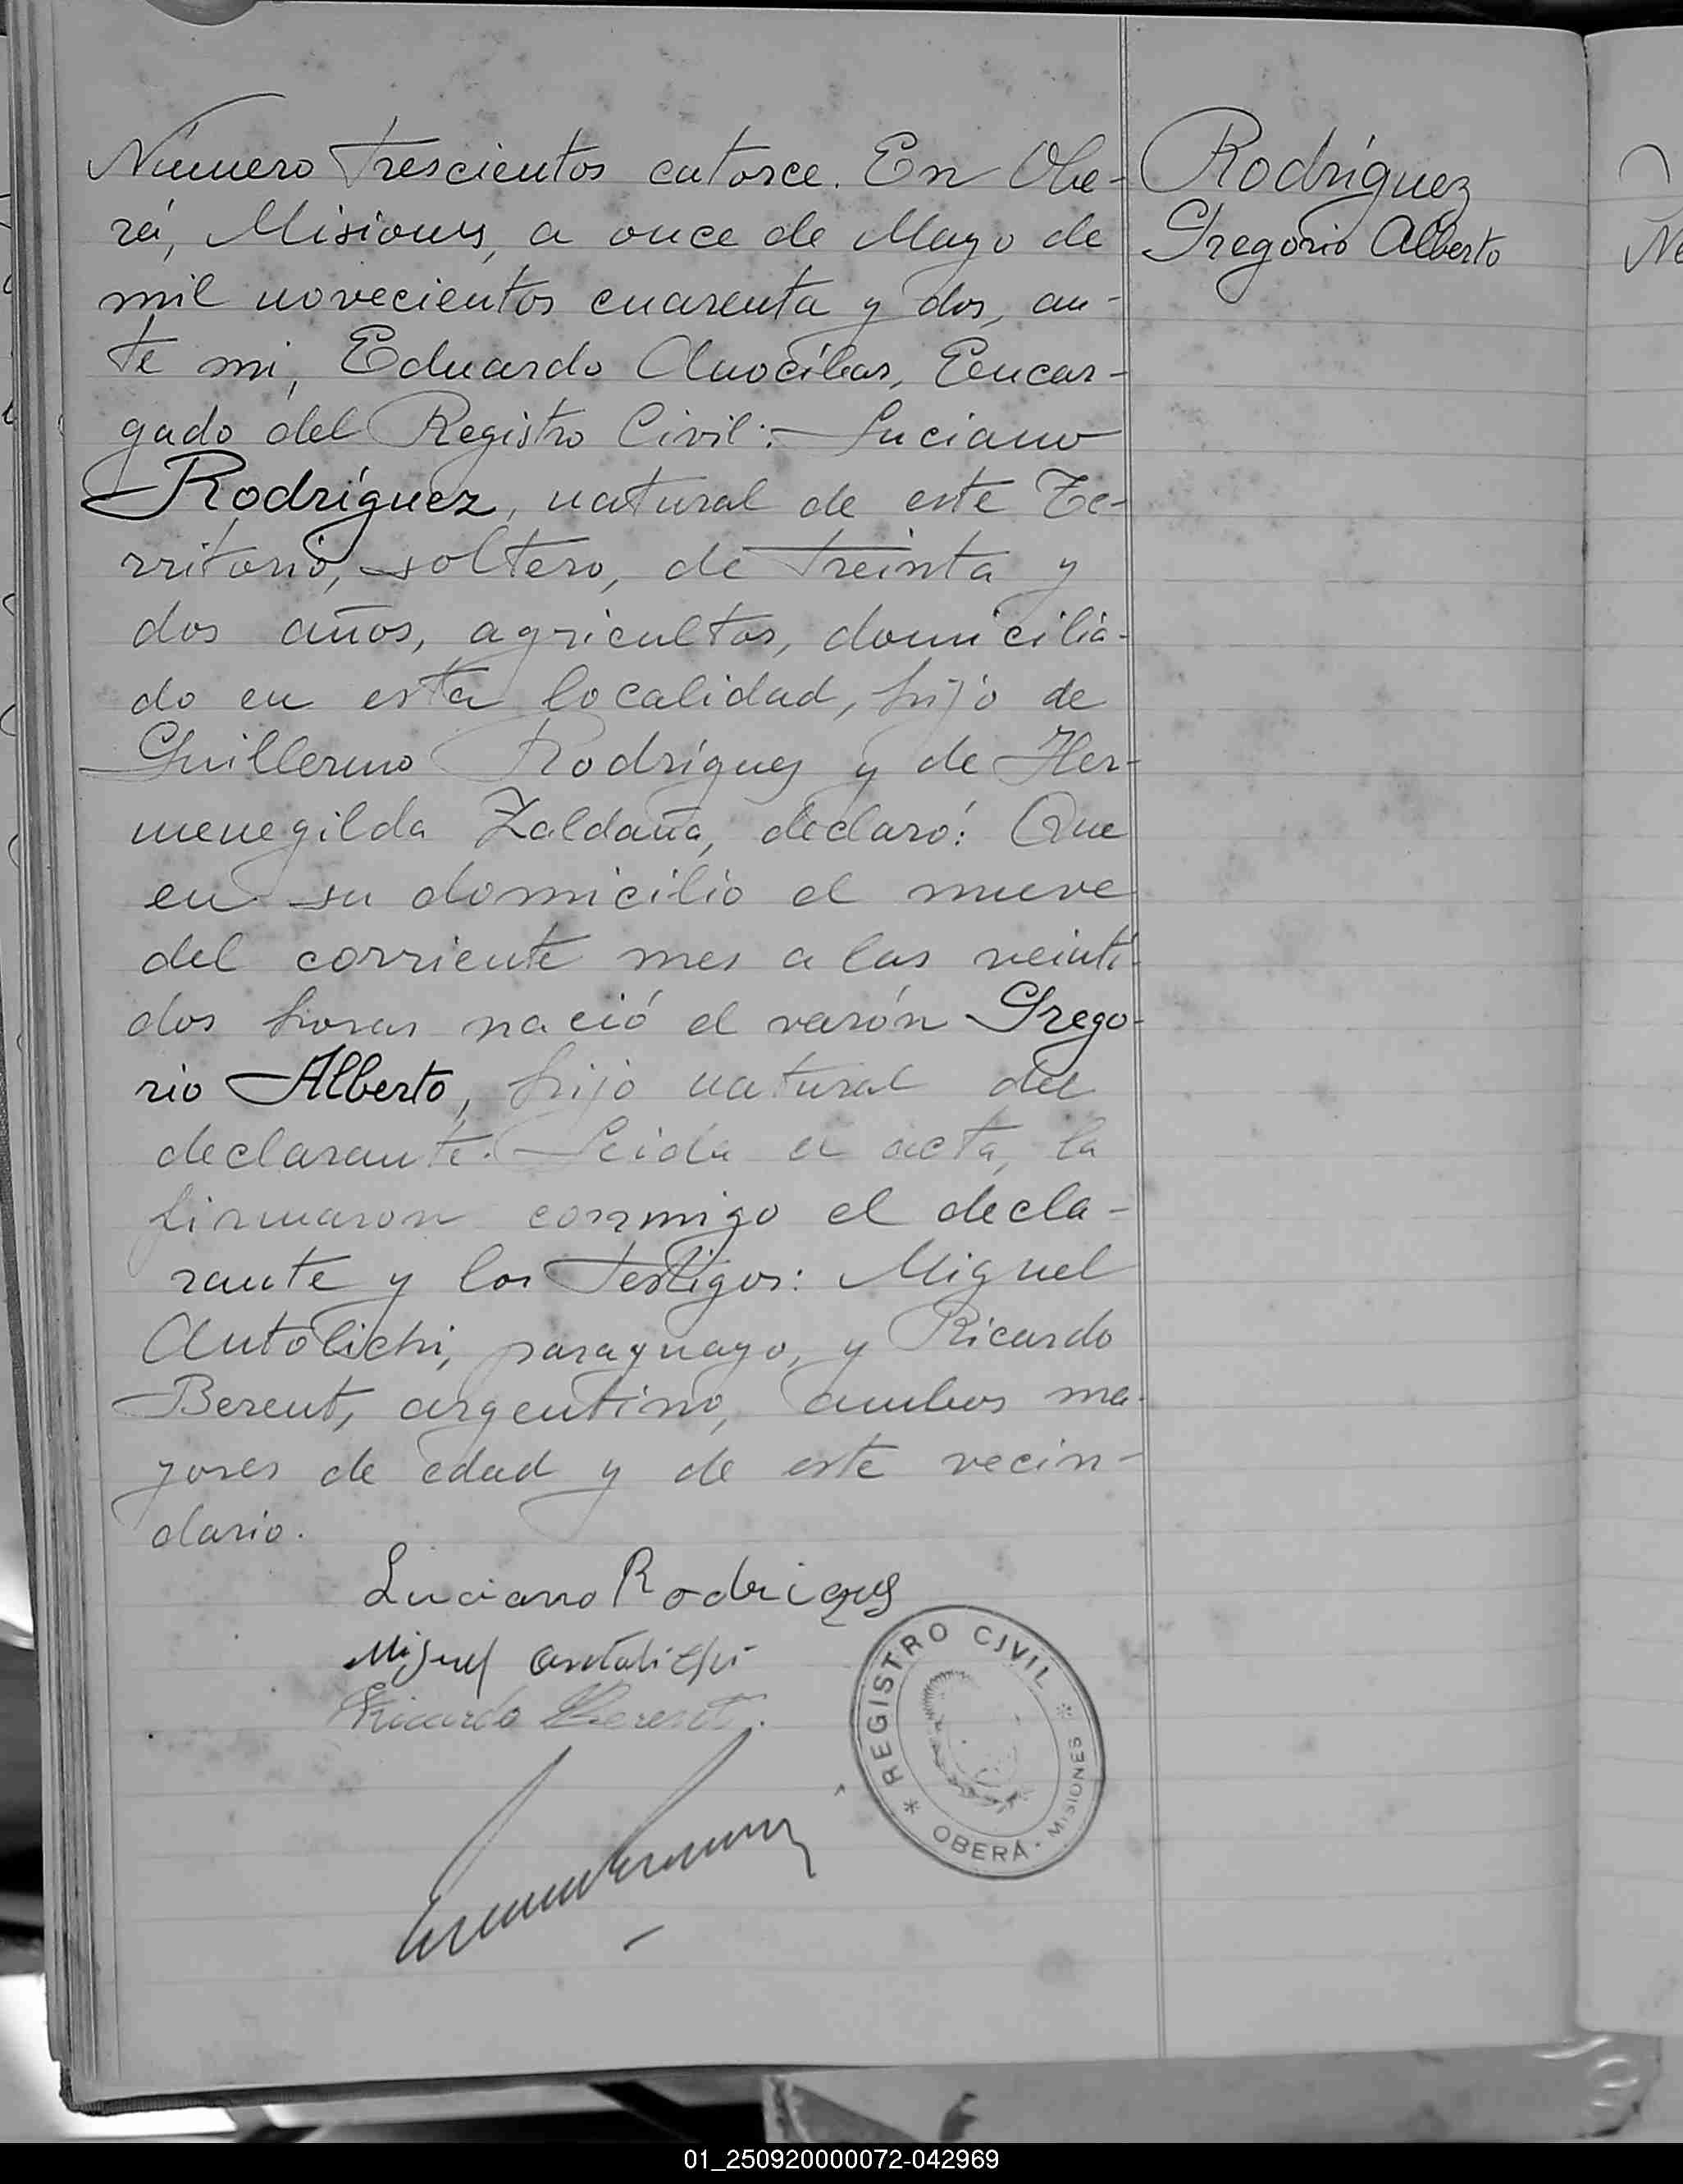 Número trescientos catorce. En Obe-
rá, Misiones, a once de Mayo de
mil novecientos cuarenta y dos, an-
te mi, Eduardo Anocíbar, Encar-
gado del Registro Civil:- Luciano
Rodríguez, natural de este Te-
rritorio, soltero, de treinta y
dos años, agricultor, domicilia-
do en esta localidad, hijo de
Guillermo Rodríguez y de Her-
menegilda Zaldaña, declaró: Que
en su domicilio el nueve
del corriente mes a las veinti-
dos horas nació el varón Grego-
rio Alberto, hijo natural del
declarante. Leida el acta, la
firmaron conmigo el decla-
rante y los testigos: Miguel
Antolichi, paraguayo, y Ricardo
Berent, argentino, ambos ma-
yores de edad y de este vecin-
dario.
Luciano Rodriguez
Miguel Antolichi
Ricardo Berent.
REGISTRO CIVIL
OBERÁ - MISIONES
Rodríguez
Gregorio Alberto
01_250920000072-042969